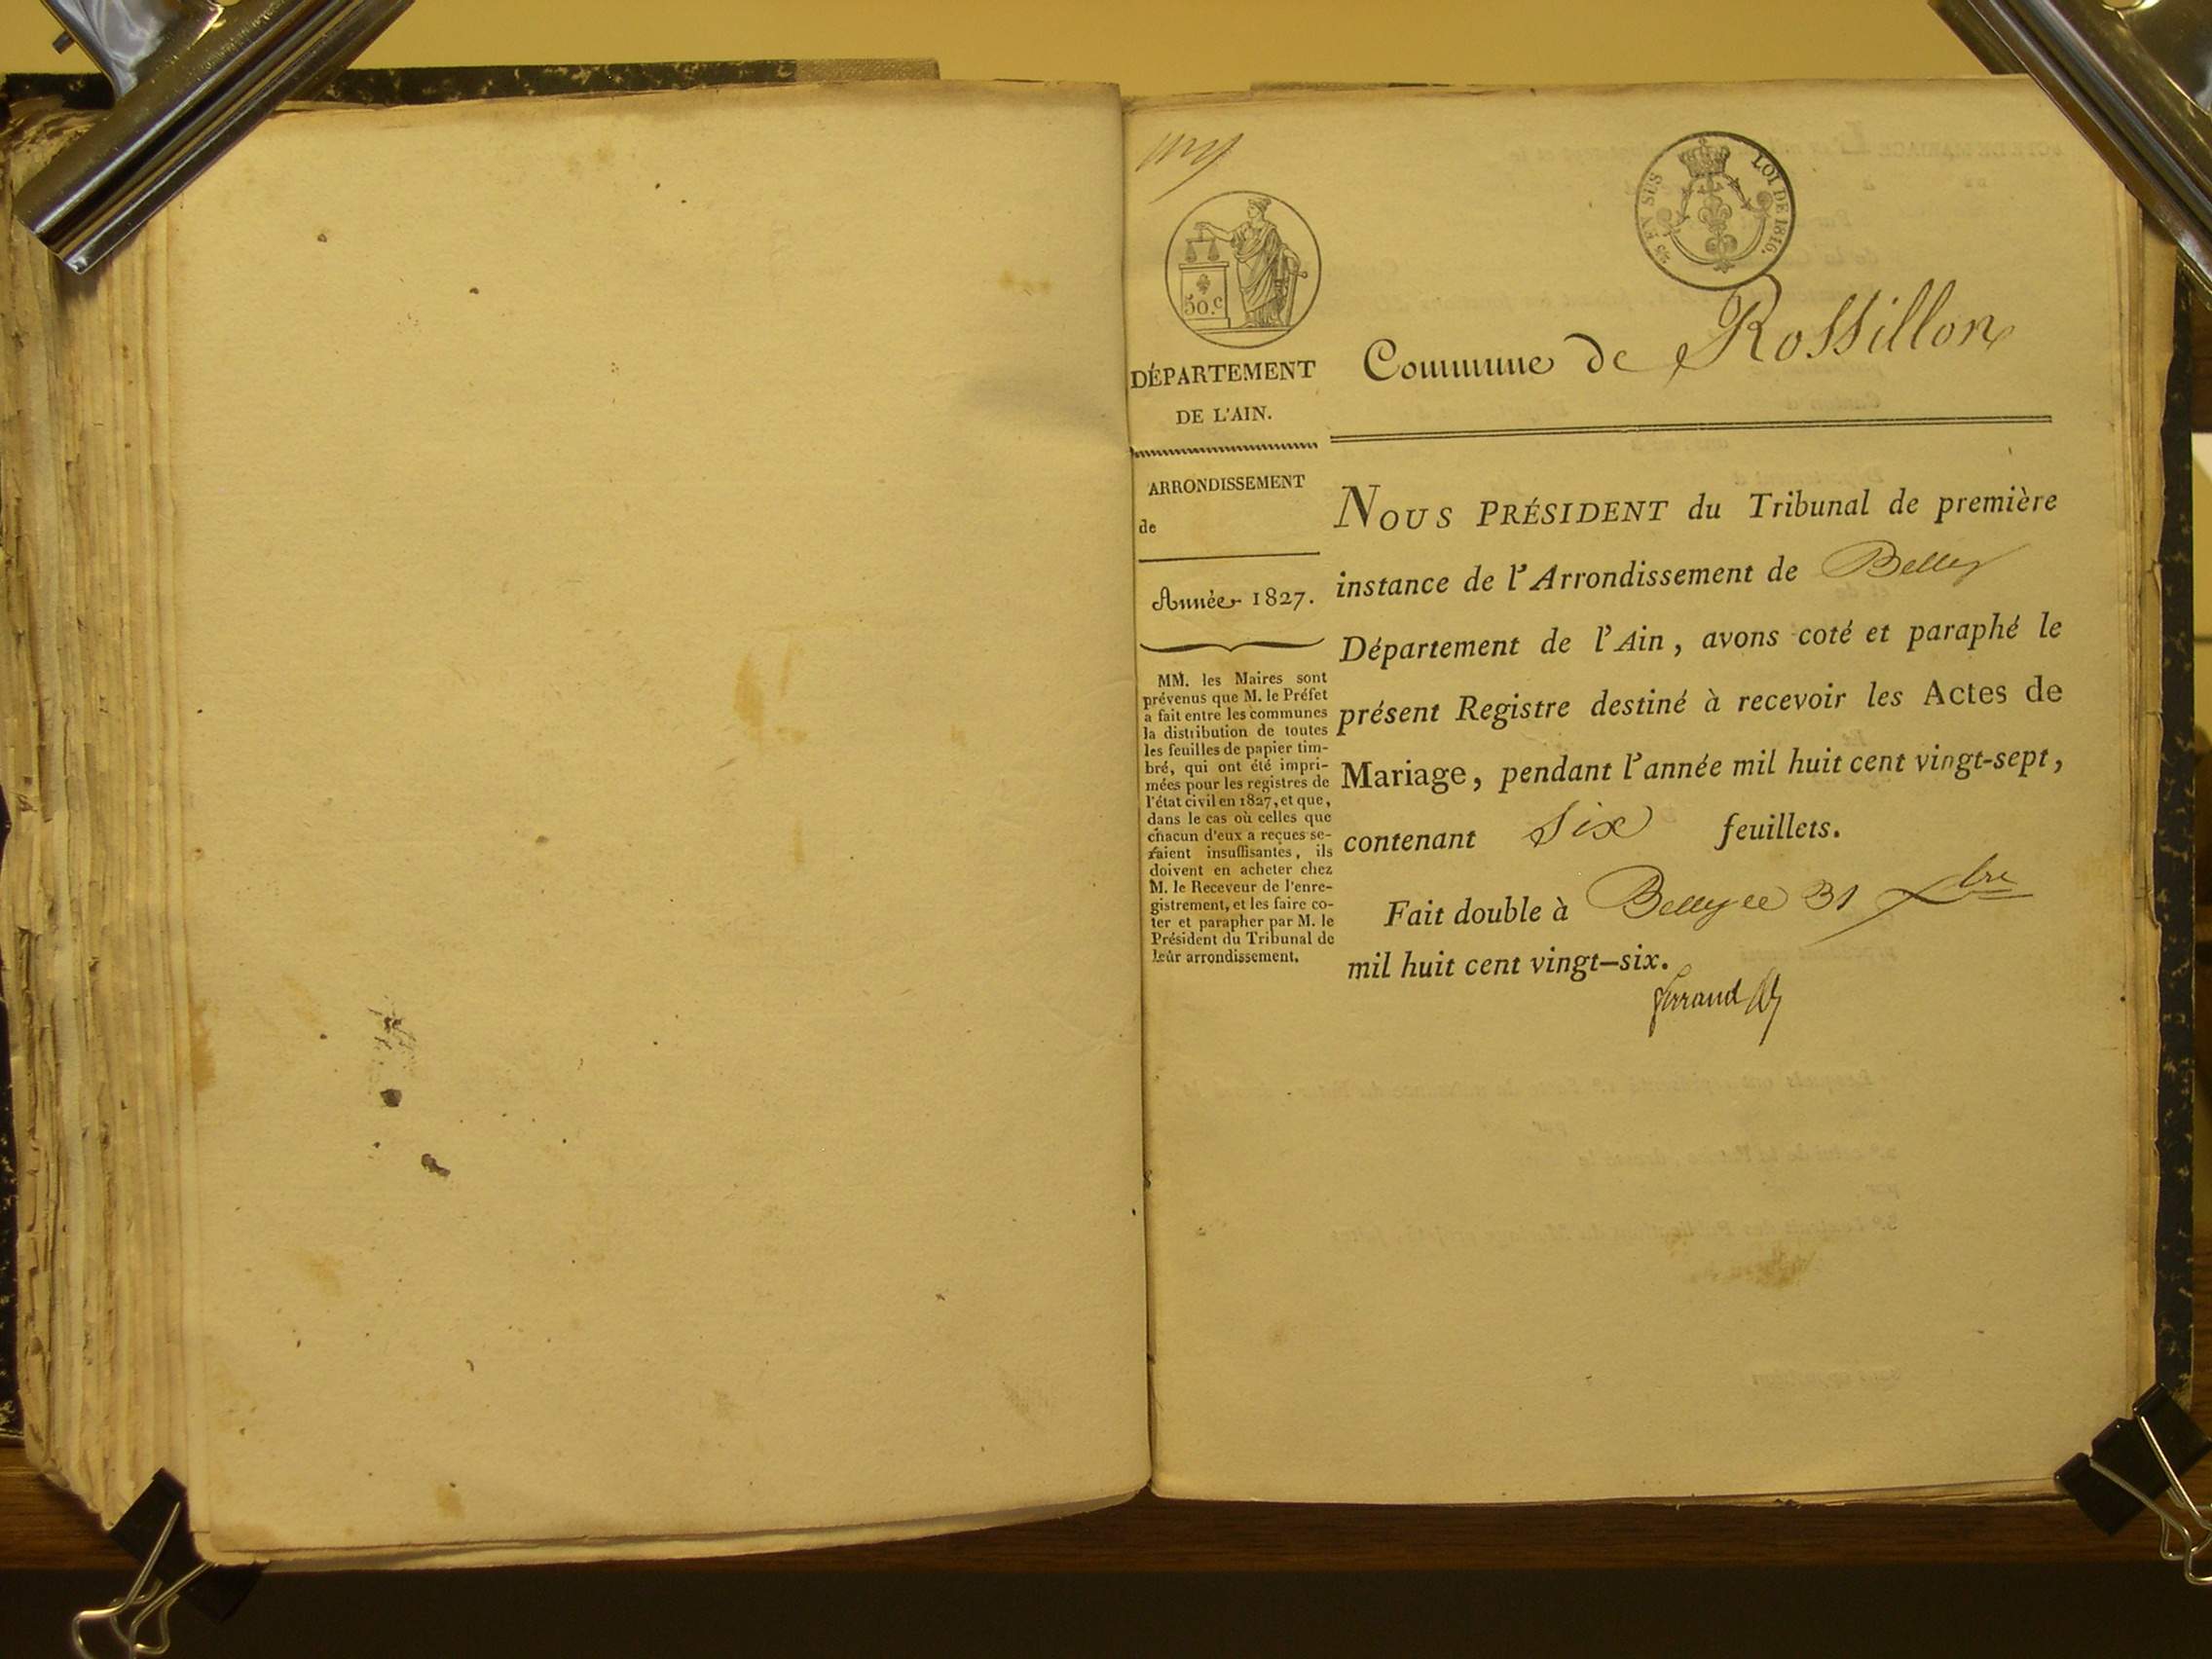 50.c
25 EN SUS
LOI DE 1816.
DÉPARTEMENT
DE L'AIN.
Commune de Rossillon
ARRONDISSEMENT
de
Année 1827.
MM. les Maires sont
prévenus que M. le Préfet
a fait entre les communes
la distribution de toutes
les feuilles de papier tim-
bré, qui ont été impri-
mées pour les registres de
l'état civil en 1827, et que,
dans le cas où celles que
chacun d'eux a reçues se-
raient insuffisantes, ils
doivent en acheter chez
M. le Receveur de l'enre-
gistrement, et les faire co-
ter et parapher par M. le
Président du Tribunal de
leur arrondissement.
NOUS PRÉSIDENT du Tribunal de première
instance de l'Arrondissement de Belley
Département de l'Ain, avons coté et paraphé le
présent Registre destiné à recevoir les Actes de
Mariage, pendant l'année mil huit cent vingt-sept,
contenant Six feuillets.
Fait double à Belley le 31 Xbre
mil huit cent vingt-six.